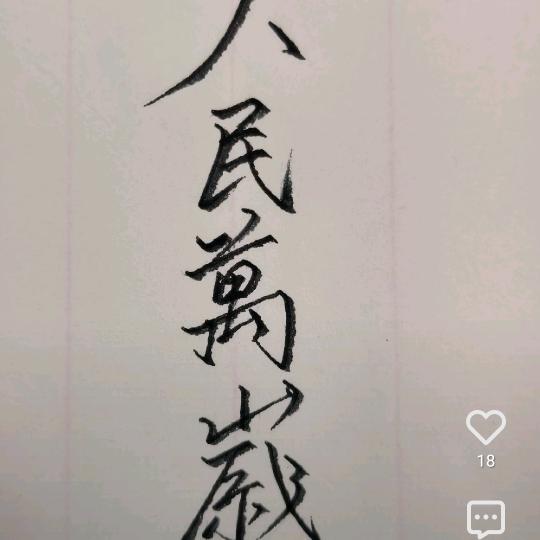 人民萬歲
18